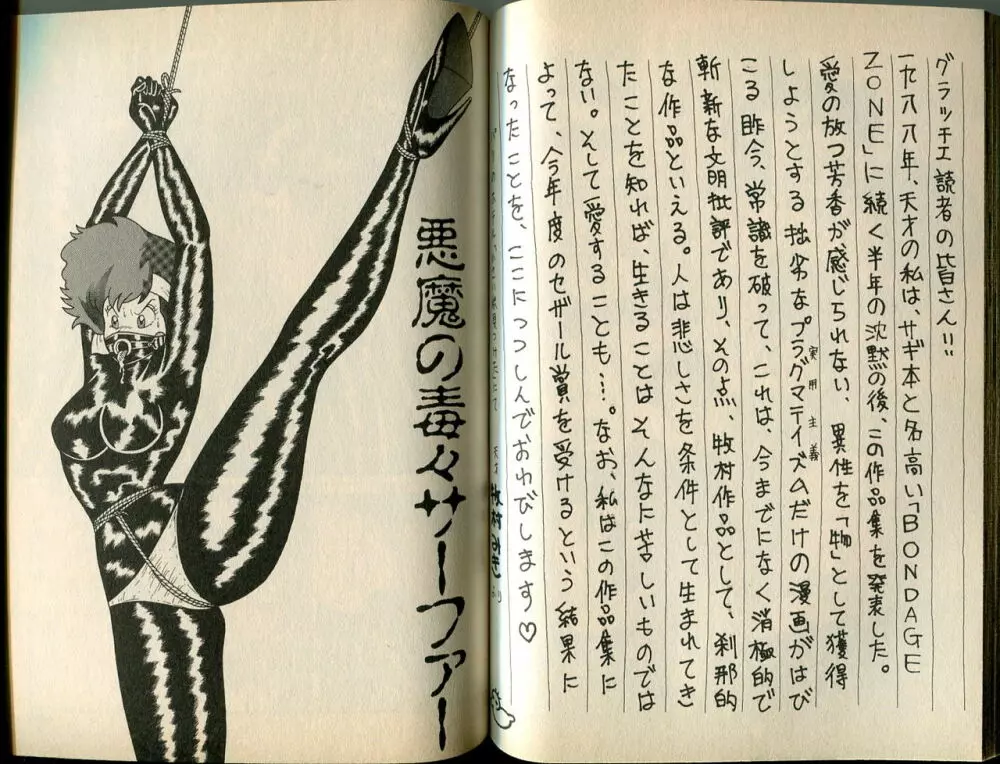 グラッチェ読者の皆さん!!
一九八八年、天才の私は、サギ本と名高い「BONDAGE
ZONE」に続く半年の沈黙の後、この作品集を発表した。
愛の放つ芳香が感じられない、異性を「物」として獲得
しようとする拙劣なプラグマテイズムだけの漫画がはび
実用主義
こる昨今、常識を破って、これは、今までになく消極的で
斬新な文明批評であり、その点、牧村作品として、刹那的
な作品といえる。人は悲しさを条件として生まれてき
たことを知れば、生きることはそんなに苦しいものでは
ない。そして愛することも…。なお、私はこの作品集に
よって、今年度のセザール賞を受けるという結果に
なったことを、ここにつつしんでおわびします♡
天才 牧村みき より
悪魔の毒々サーファー